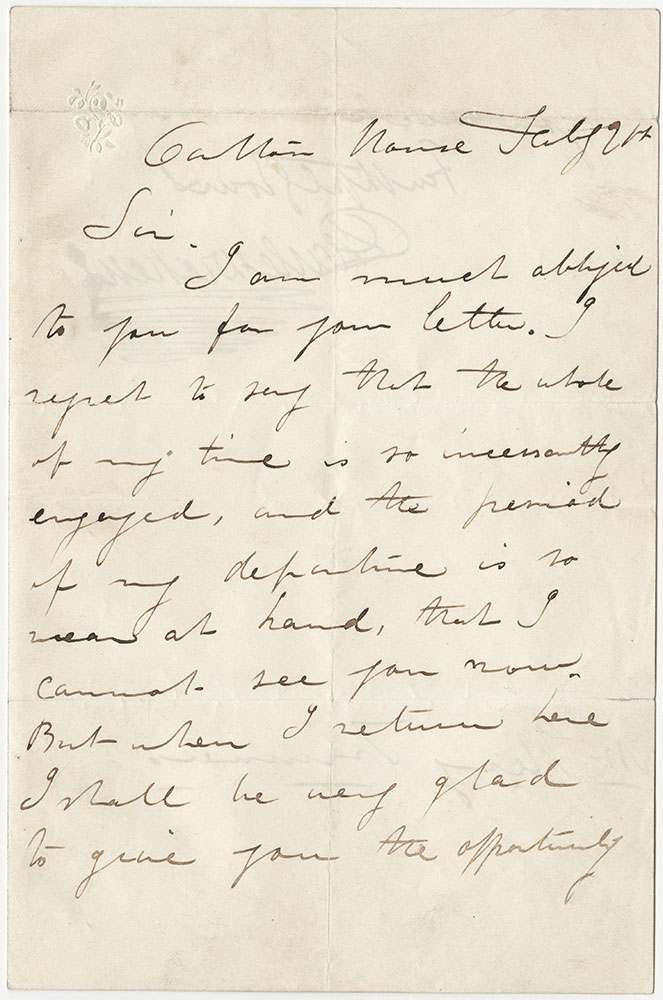 Carlton House Feby 9th
Sir.
I am much obliged
to you for your letter. I
regret to say that the whole
of my time is so incessantly
engaged, and the period
of my departure is so
near at hand, that I
cannot see you now.
But when I return here
I shall be very glad
to give you the opportunity